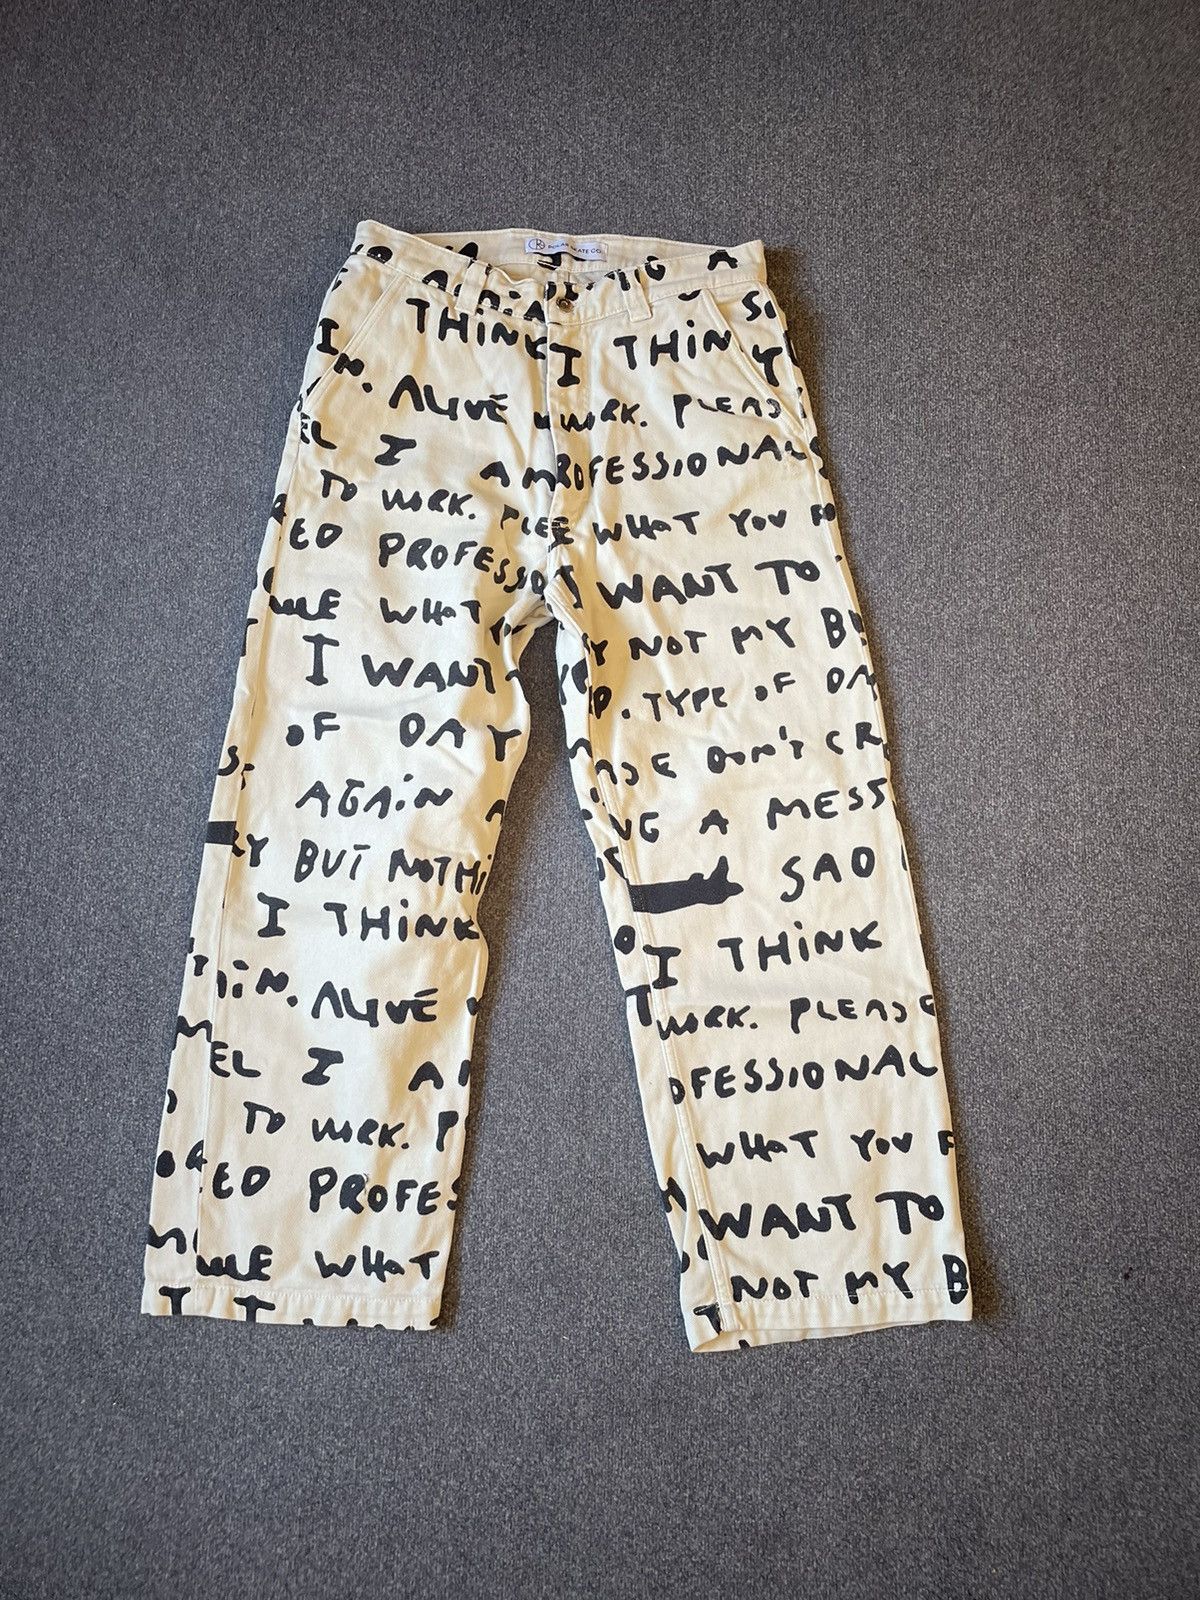 POLAR SKATE CO.
I THINK I THIN
ALIVE WORK. PLEASE
EL I A PROFESSIONAL
TO WORK. PLE WHAT YOU
ED PROFESSIO WANT TO
ME WHAT NOT MY B
I WANT TYPE OF DA
OF DAY DON'T CR
AGAIN A MESS
RY BUT NOTHI SAD
I THINK I THINK
ALIVE WORK. PLEASE
EL I A OFESSIONAL
TO WORK. P WHAT YOU F
ED PROFES WANT TO
ME WHAT NOT MY B